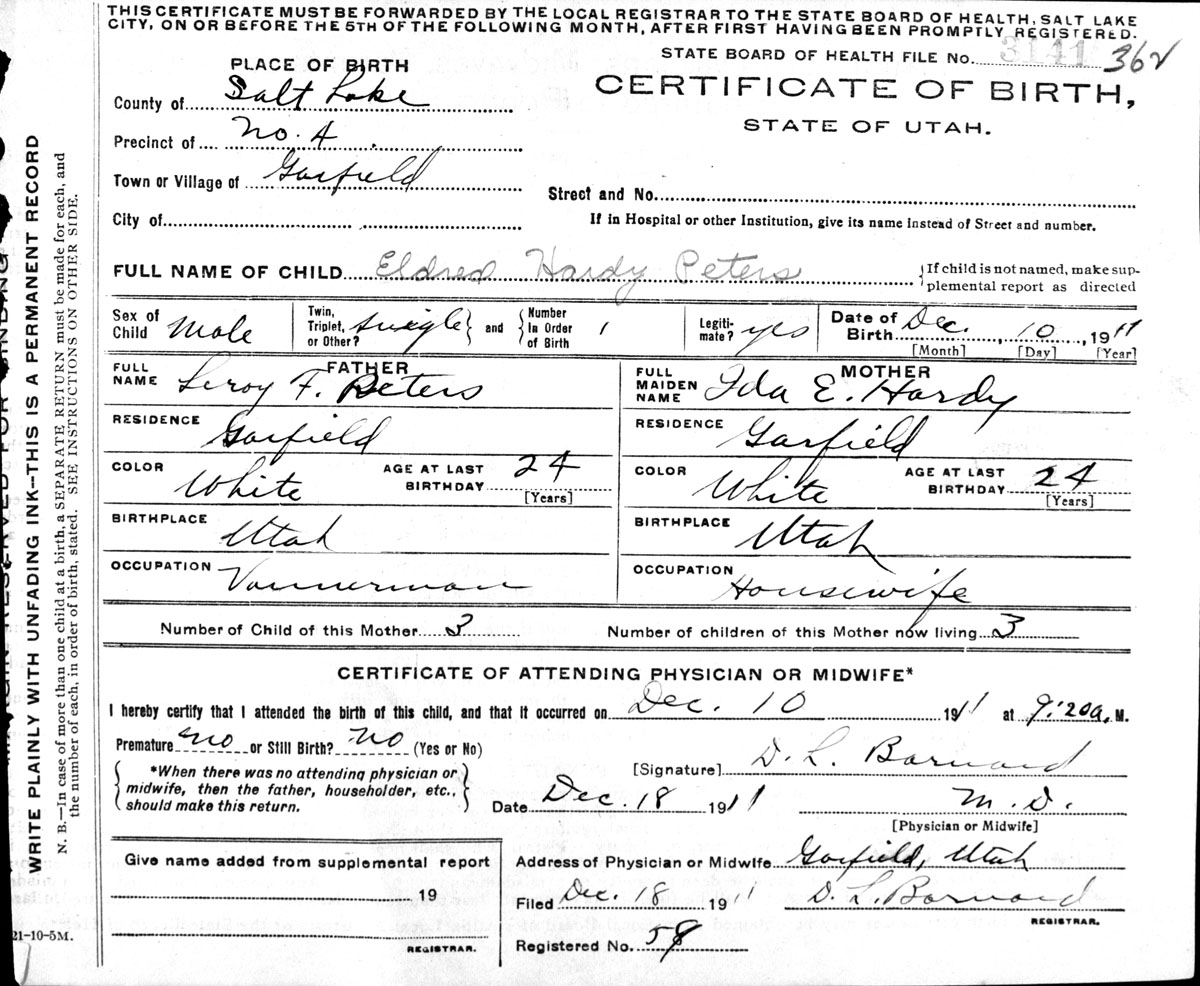 THIS CERTIFICATE MUST BE FORWARDED BY THE LOCAL REGISTRAR TO THE STATE BOARD OF HEALTH, SALT LAKE
CITY, ON OR BEFORE THE 5TH OF THE FOLLOWING MONTH, AFTER FIRST HAVING BEEN PROMPTLY REGISTERED.
STATE BOARD OF HEALTH FILE No. 3141 362
PLACE OF BIRTH
CERTIFICATE OF BIRTH,
STATE OF UTAH.
County of Salt Lake
Precinct of No. 4
Town or Village of Garfield
Street and No.
City of
If in Hospital or other Institution, give its name instead of Street and number.
FULL NAME OF CHILD Eldred Hardy Peters
If child is not named, make sup-
plemental report as directed
Sex of Child Male
Twin, Triplet, or Other? Single and Number In Order of Birth 1
Legiti-mate? yes
Date of Birth Dec. 10, 1911
[Month] [Day] [Year]
FATHER
FULL NAME Leroy F. Peters
MOTHER
FULL MAIDEN NAME Ida E. Hardy
RESIDENCE Garfield
RESIDENCE Garfield
COLOR White AGE AT LAST BIRTHDAY 24 [Years]
COLOR White AGE AT LAST BIRTHDAY 24 [Years]
BIRTHPLACE Utah
BIRTHPLACE Utah
OCCUPATION Vannerman
OCCUPATION Housewife
Number of Child of this Mother 3
Number of children of this Mother now living 3
CERTIFICATE OF ATTENDING PHYSICIAN OR MIDWIFE*
I hereby certify that I attended the birth of this child, and that it occurred on Dec. 10 1911 at 9:20 a. M.
Premature no or Still Birth? no (Yes or No)
*When there was no attending physician or
midwife, then the father, householder, etc.,
should make this return.
[Signature] D. L. Barnard
Date Dec. 18 1911 M. D.
[Physician or Midwife]
Give name added from supplemental report
19
REGISTRAR.
Address of Physician or Midwife Garfield, Utah
Filed Dec. 18 1911 D. L. Barnard
REGISTRAR.
Registered No. 58
21-10-5M.
WRITE PLAINLY WITH UNFADING INK--THIS IS A PERMANENT RECORD
N. B.—In case of more than one child at a birth, a SEPARATE RETURN must be made for each, and
the number of each, in order of birth, stated. SEE INSTRUCTIONS ON OTHER SIDE.